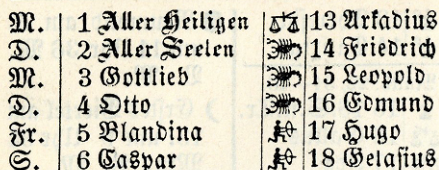 M. 1 Aller Heiligen 13 Arkadius
D. 2 Aller Seelen 14 Friedrich
M. 3 Gottlieb 15 Leopold
D. 4 Otto 16 Edmund
Fr. 5 Blandina 17 Hugo
S. 6 Caspar 18 Gelasius